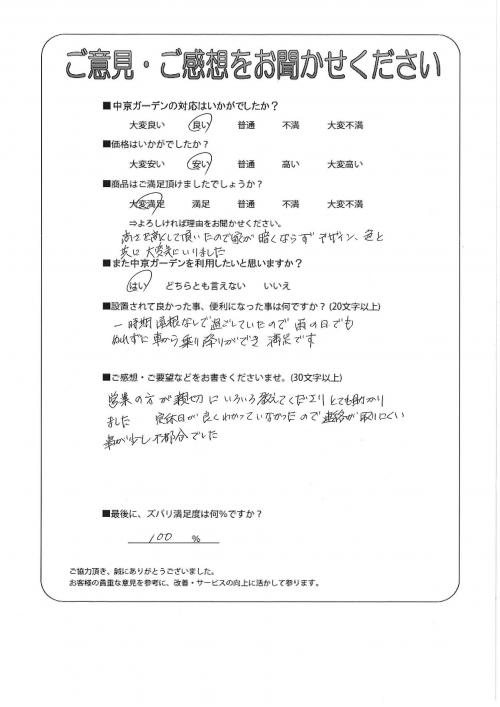 ご意見・ご感想をお聞かせください
■中京ガーデンの対応はいかがでしたか？
大変良い 良い 普通 不満 大変不満
■価格はいかがでしたか？
大変安い 安い 普通 高い 大変高い
■商品はご満足頂けましたでしょうか？
大変満足 満足 普通 不満 大変不満
⇒よろしければ理由をお聞かせください。
高さを高くして頂いたので家が暗くならず デザイン、色と
共に 大変気にいりました
■また中京ガーデンを利用したいと思いますか？
はい どちらとも言えない いいえ
■設置されて良かった事、便利になった事は何ですか？(20文字以上)
一時期 屋根なしで過ごしていたので 雨の日でも
ぬれずに 車から乗り降りができ 満足です
■ご感想・ご要望などをお書きくださいませ。(30文字以上)
営業の方が 親切に いろいろ教えてくださり とても助かり
ました 定休日が良くわかっていなかったので 連絡が取りにくい
事が少し 不都合でした
■最後に、ズバリ満足度は何％ですか？
100 ％
ご協力頂き、誠にありがとうございました。
お客様の貴重な意見を参考に、改善・サービスの向上に活かして参ります。